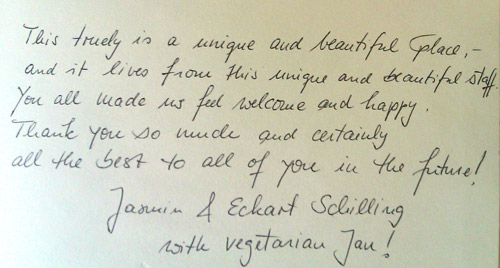 This truely is a unique and beautiful place,-
and it lives from this unique and beautiful staff.
You all made us feel welcome and happy.
Thank you so much and certainly
all the best to all of you in the future!
Jasmin & Eckart Schilling
with vegetarian Jan!